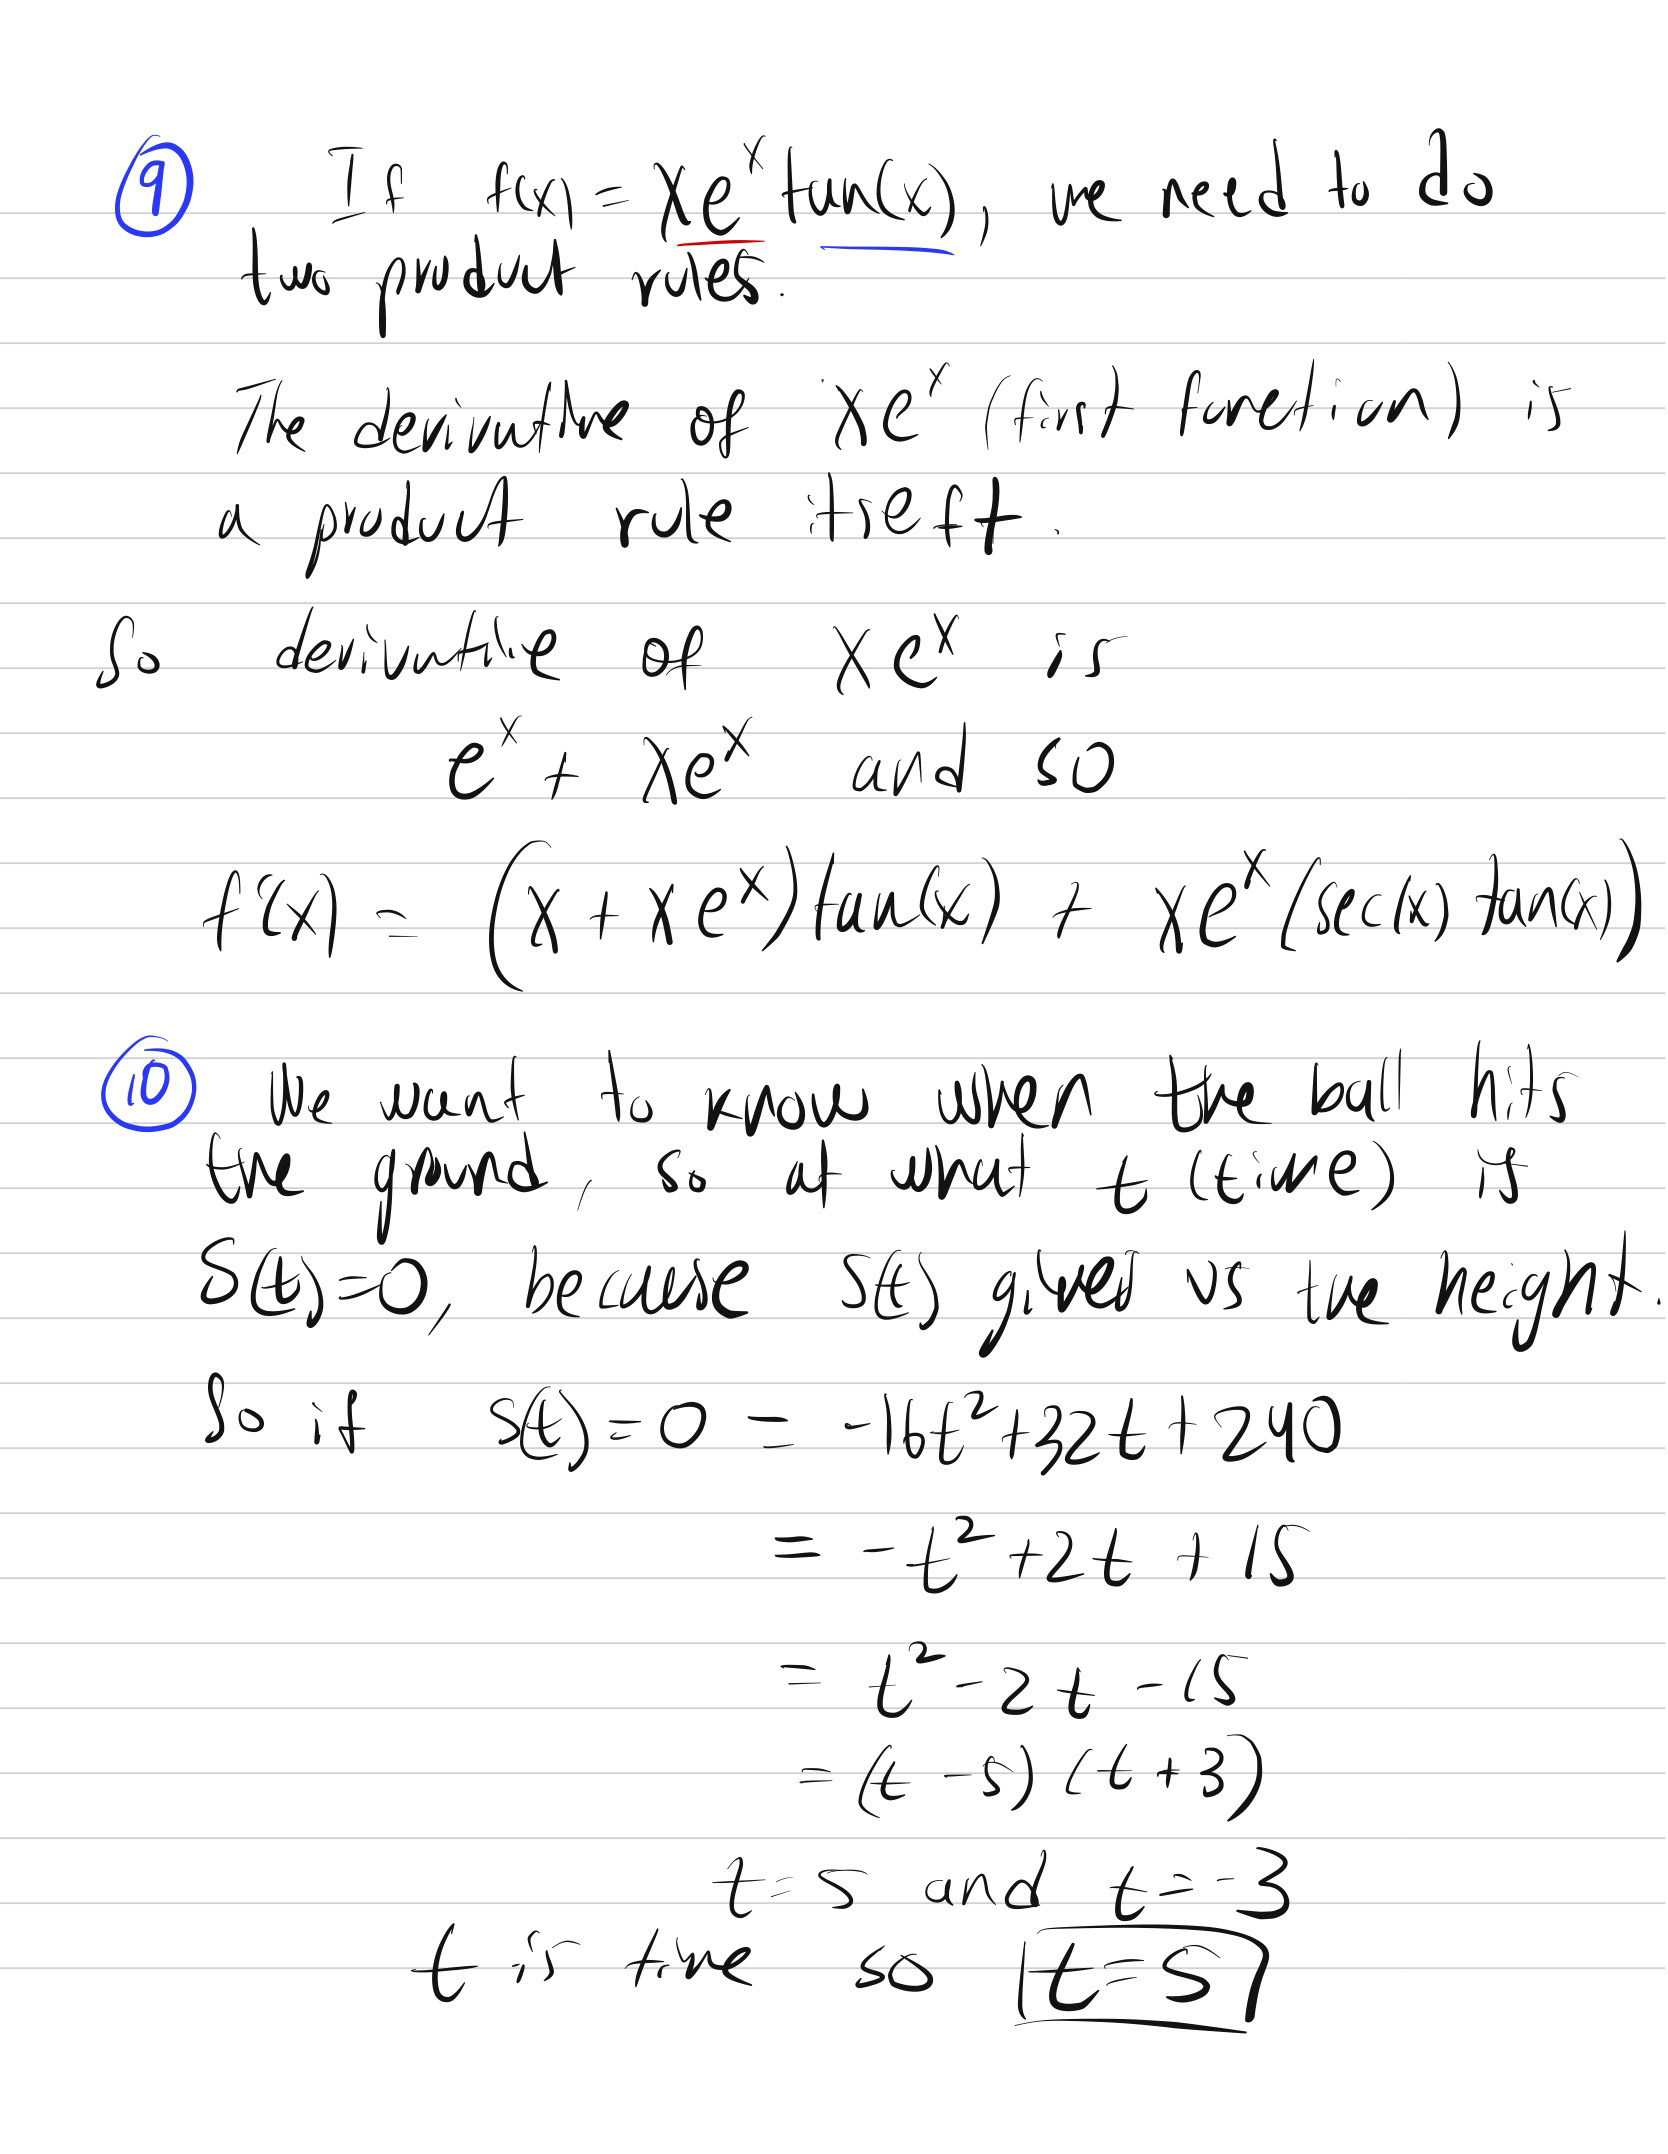 9 If f(x) = xe^x tan(x), we need to do
two product rules.
The derivative of xe^x (first function) is
a product rule itself.
So derivative of xe^x is
e^x + xe^x and so
f'(x) = (x + xe^x) tan(x) + xe^x (sec(x) tan(x))
10 We want to know when the ball hits
the ground, so at what t (time) is
S(t)=0, because S(t) gives us the height.
So if S(t) = 0 = -16t²+32t+240
= -t²+2t+15
= t²-2t-15
= (t-5)(t+3)
t=5 and t=-3
t is time so t=5